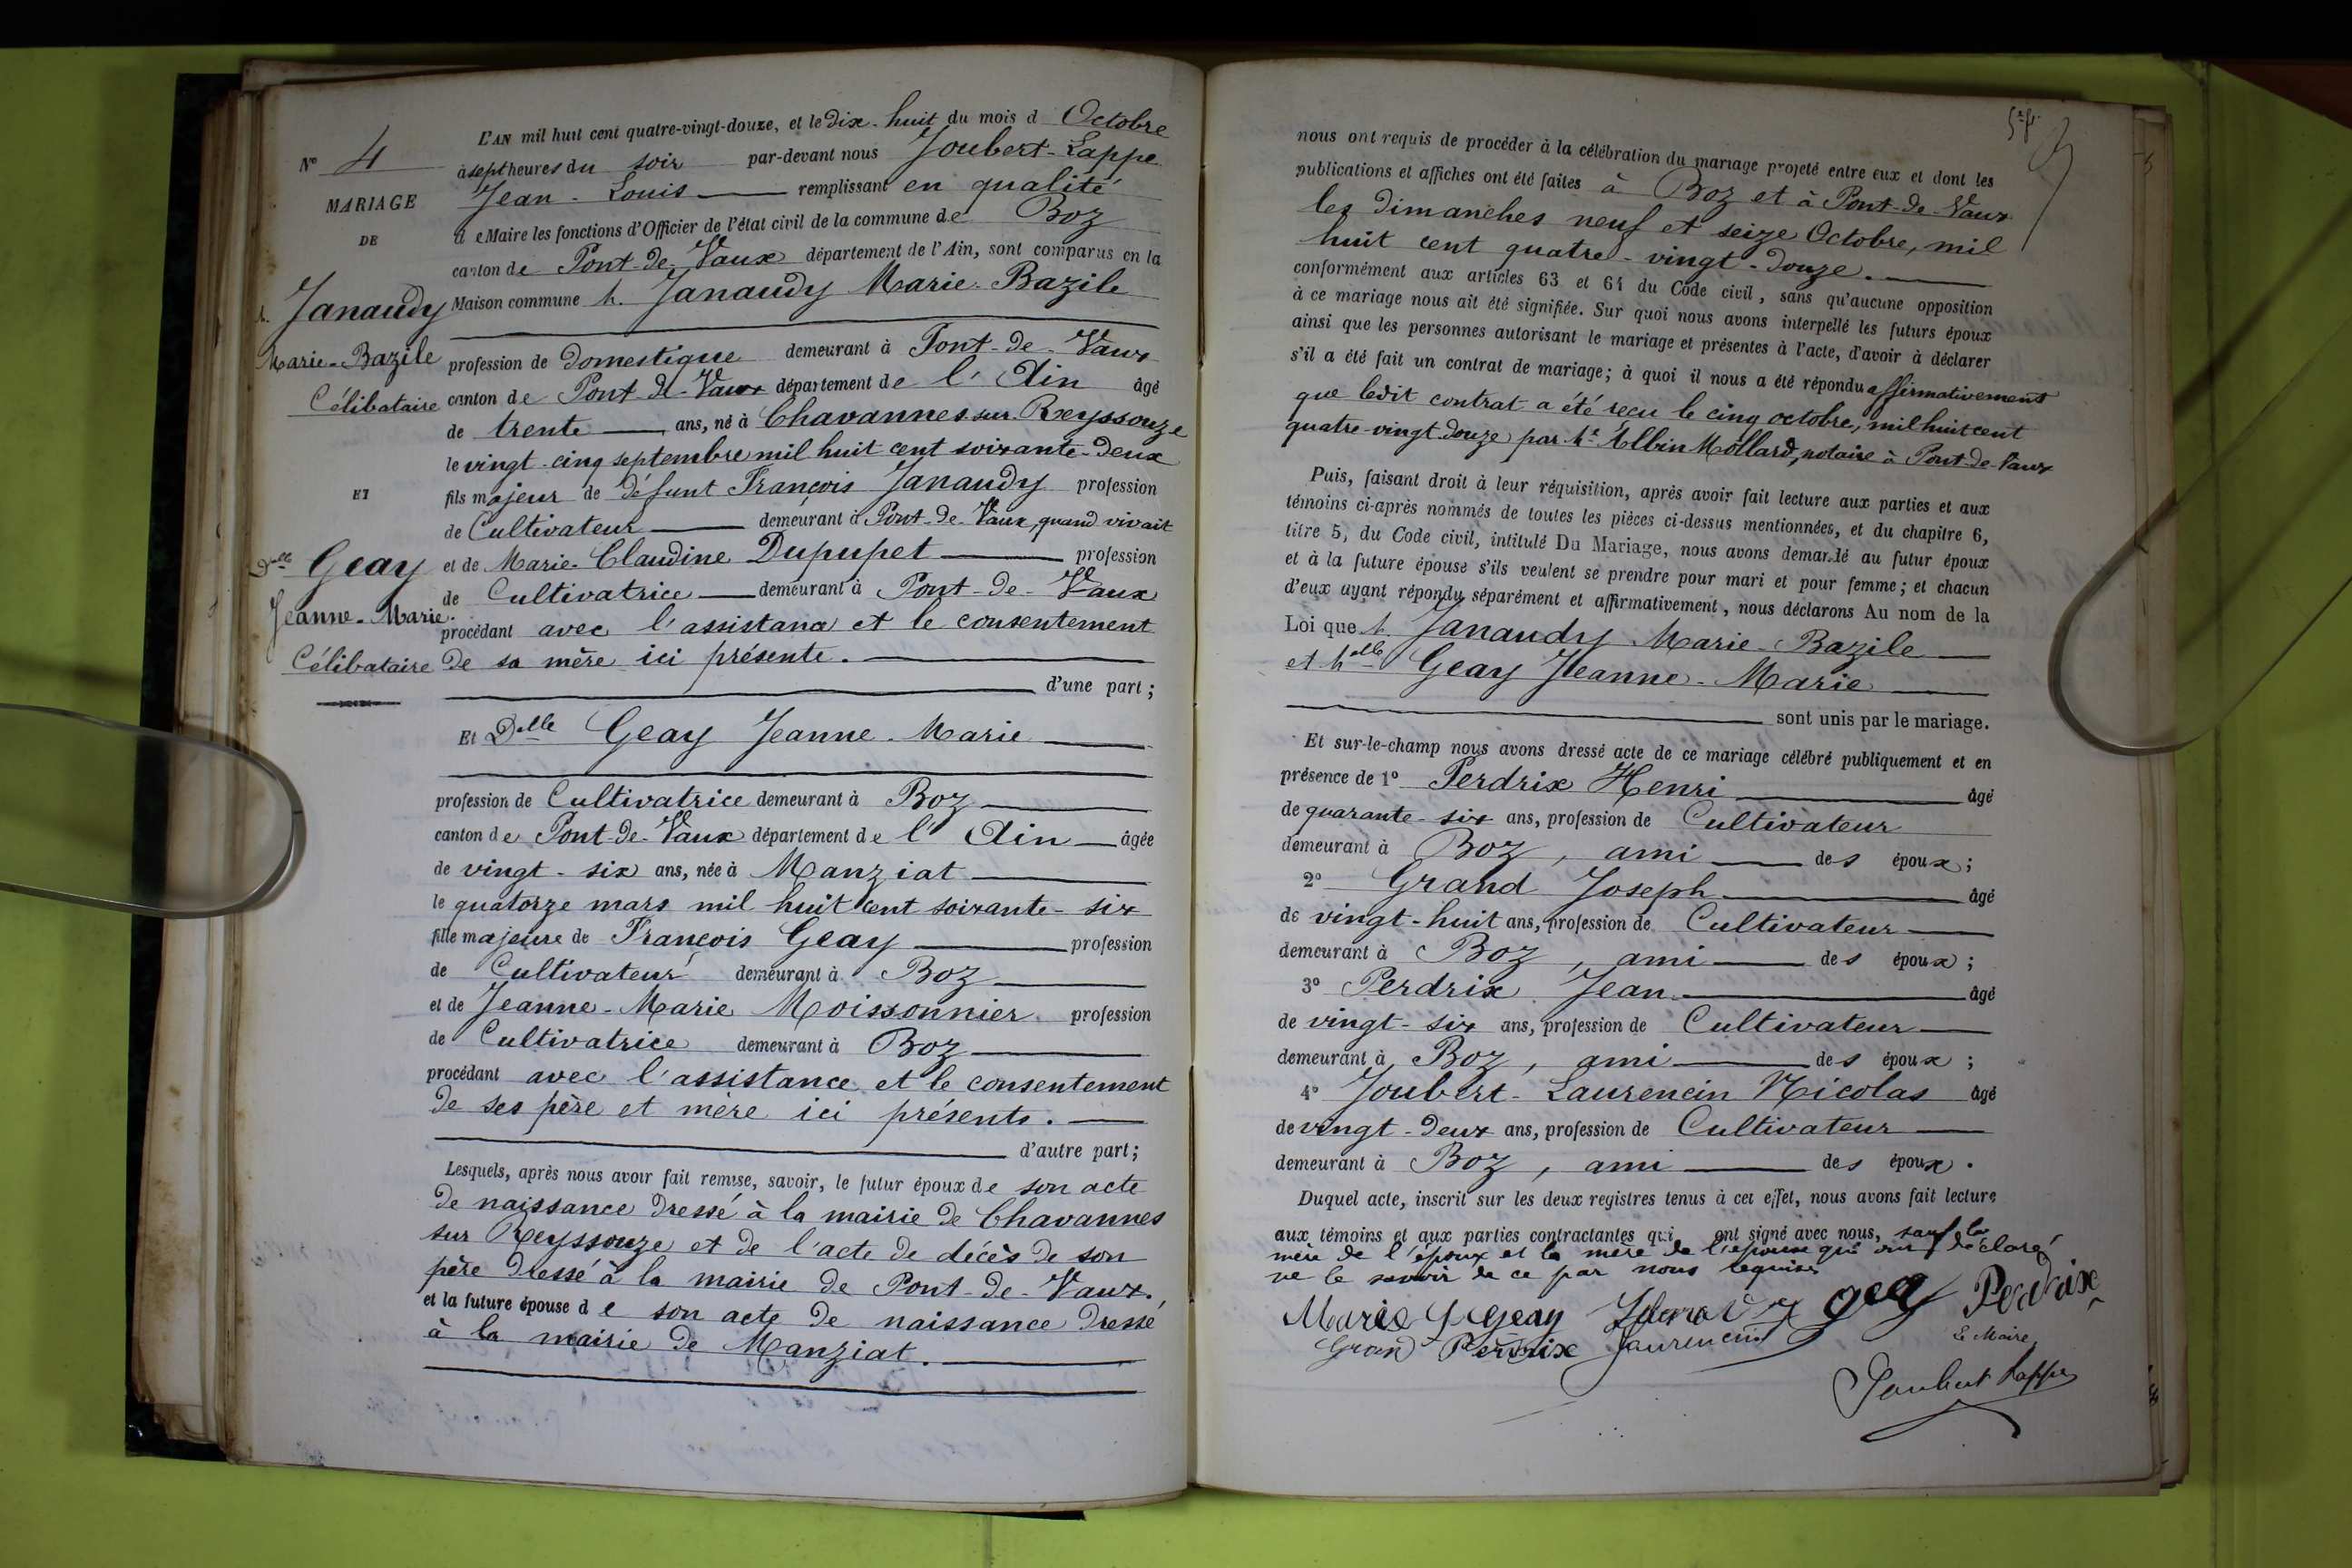 N° 4
MARIAGE
DE
M. Janaudy
Marie-Bazile
Célibataire
ET
Delle Geay
Jeanne-Marie.
Célibataire
L'AN mil huit cent quatre-vingt-douze, et le Dix-huit du mois d Octobre
à sept heures du soir par-devant nous Joubert-Lappe
Jean-Louis remplissant en qualité
de Maire les fonctions d'Officier de l'état civil de la commune de Boz
canton de Pont-de-Vaux département de l'Ain, sont comparus en la
Maison commune M. Janaudy Marie-Bazile
profession de domestique demeurant à Pont-de-Vaux
canton de Pont-de-Vaux département de l'Ain âgé
de trente ans, né à Chavannes sur Reyssouze
le vingt-cinq septembre mil huit cent soixante-deux
fils majeur de défunt François Janaudy profession
de Cultivateur demeurant à Pont-de-Vaux, quand vivait
et de Marie-Claudine Dupupet profession
de Cultivatrice demeurant à Pont-de-Vaux
procédant avec l'assistance et le consentement
de sa mère ici présente.
d'une part;
Et Delle Geay Jeanne-Marie
profession de Cultivatrice demeurant à Boz
canton de Pont-de-Vaux département de l'Ain âgée
de vingt-six ans, née à Manziat
le quatorze mars mil huit cent soixante-six
fille majeure de François Geay profession
de Cultivateur demeurant à Boz
et de Jeanne-Marie Moissonnier profession
de Cultivatrice demeurant à Boz
procédant avec l'assistance et le consentement
de ses père et mère ici présents.
d'autre part;
Lesquels, après nous avoir fait remise, savoir, le futur époux de son acte
de naissance dressé à la mairie de Chavannes
sur Reyssouze et de l'acte de décès de son
père dressé à la mairie de Pont-de-Vaux.
et la future épouse de son acte de naissance dressé
à la mairie de Manziat.
nous ont requis de procéder à la célébration du mariage projeté entre eux et dont les
publications et affiches ont été faites à Boz et à Pont-de-Vaux
les dimanches neuf et seize Octobre, mil
huit cent quatre-vingt-douze.
conformément aux articles 63 et 64 du Code civil, sans qu'aucune opposition
à ce mariage nous ait été signifiée. Sur quoi nous avons interpellé les futurs époux
ainsi que les personnes autorisant le mariage et présentes à l'acte, d'avoir à déclarer
s'il a été fait un contrat de mariage; à quoi il nous a été répondu affirmativement
que ledit contrat a été reçu le cinq octobre, mil huit cent
quatre-vingt douze par Me Albin Mollard, notaire à Pont-de-Vaux
Puis, faisant droit à leur réquisition, après avoir fait lecture aux parties et aux
témoins ci-après nommés de toutes les pièces ci-dessus mentionnées, et du chapitre 6,
titre 5, du Code civil, intitulé Du Mariage, nous avons demandé au futur époux
et à la future épouse s'ils veulent se prendre pour mari et pour femme; et chacun
d'eux ayant répondu séparément et affirmativement, nous déclarons Au nom de la
Loi que M. Janaudy Marie-Bazile
et Melle Geay Jeanne-Marie
sont unis par le mariage.
Et sur-le-champ nous avons dressé acte de ce mariage célébré publiquement et en
présence de 1° Perdrix Henri âgé
de quarante-six ans, profession de Cultivateur
demeurant à Boz, ami des époux;
2° Grand Joseph âgé
de vingt-huit ans, profession de Cultivateur
demeurant à Boz, ami des époux;
3° Perdrix Jean âgé
de vingt-six ans, profession de Cultivateur
demeurant à Boz, ami des époux;
4° Joubert-Laurencin Nicolas âgé
de vingt-deux ans, profession de Cultivateur
demeurant à Boz, ami des époux.
Duquel acte, inscrit sur les deux registres tenus à cet effet, nous avons fait lecture
aux témoins et aux parties contractantes qui ont signé avec nous, sauf la
mère de l'époux et la mère de l'épouse qui ont déclaré
ne le savoir de ce par nous requises
Marie Geay Geay Perdrix
Grand Perdrix Laurencin Le Maire,
Joubert Lappe